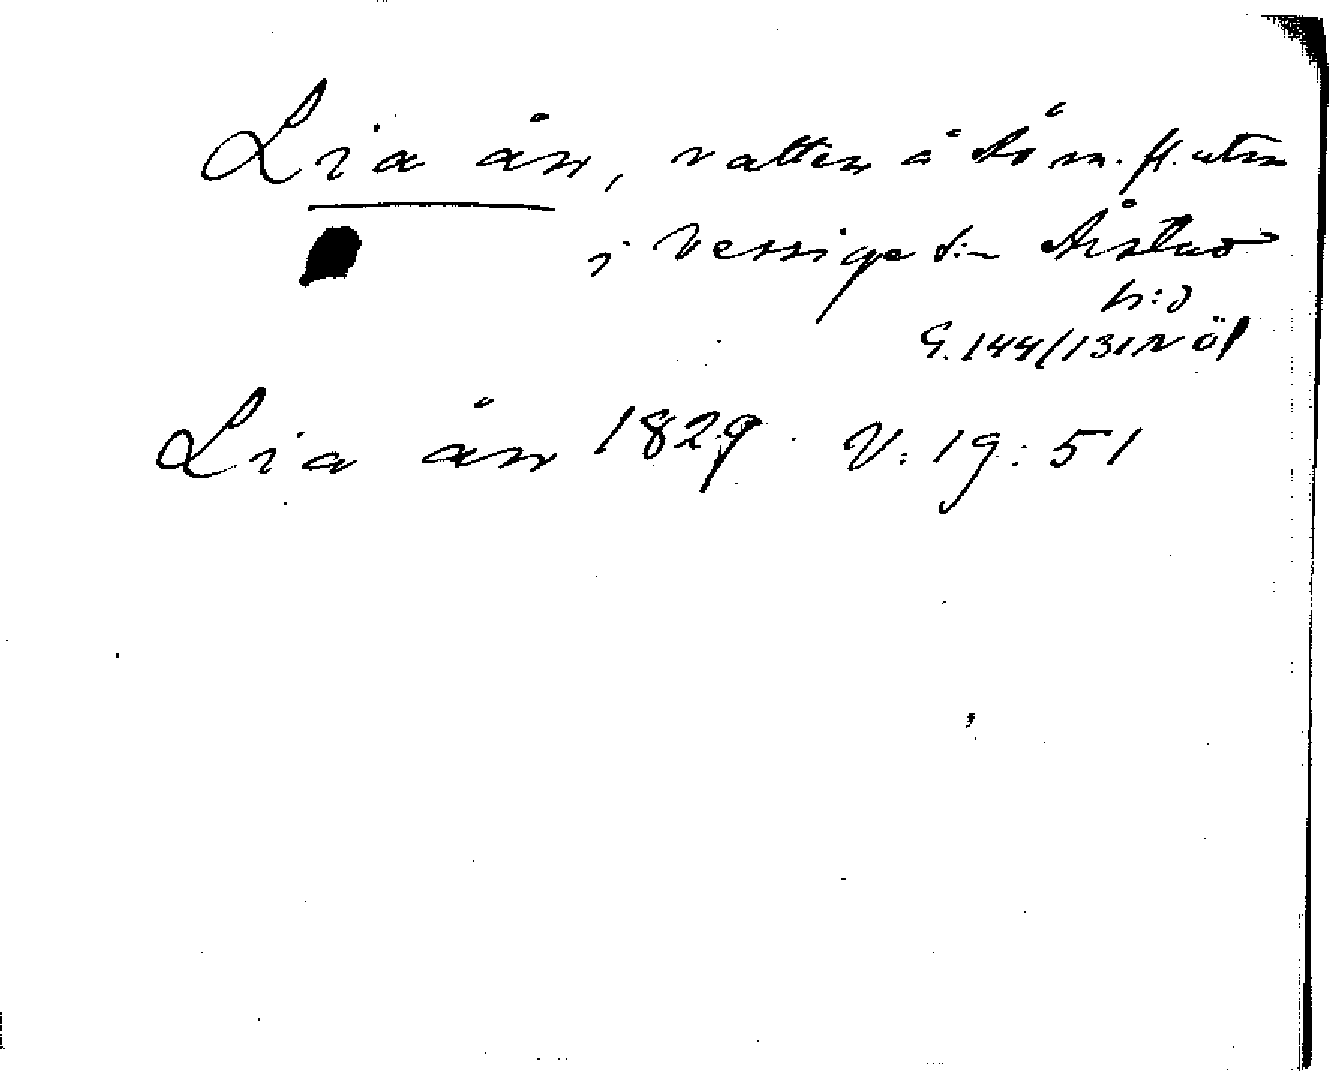 Lia ån, vatten å Sö m. fl. utm
i Vessige s:n Årstad
h:d
G. 144/1312 öl
Lia ån 1829 V: 19: 51